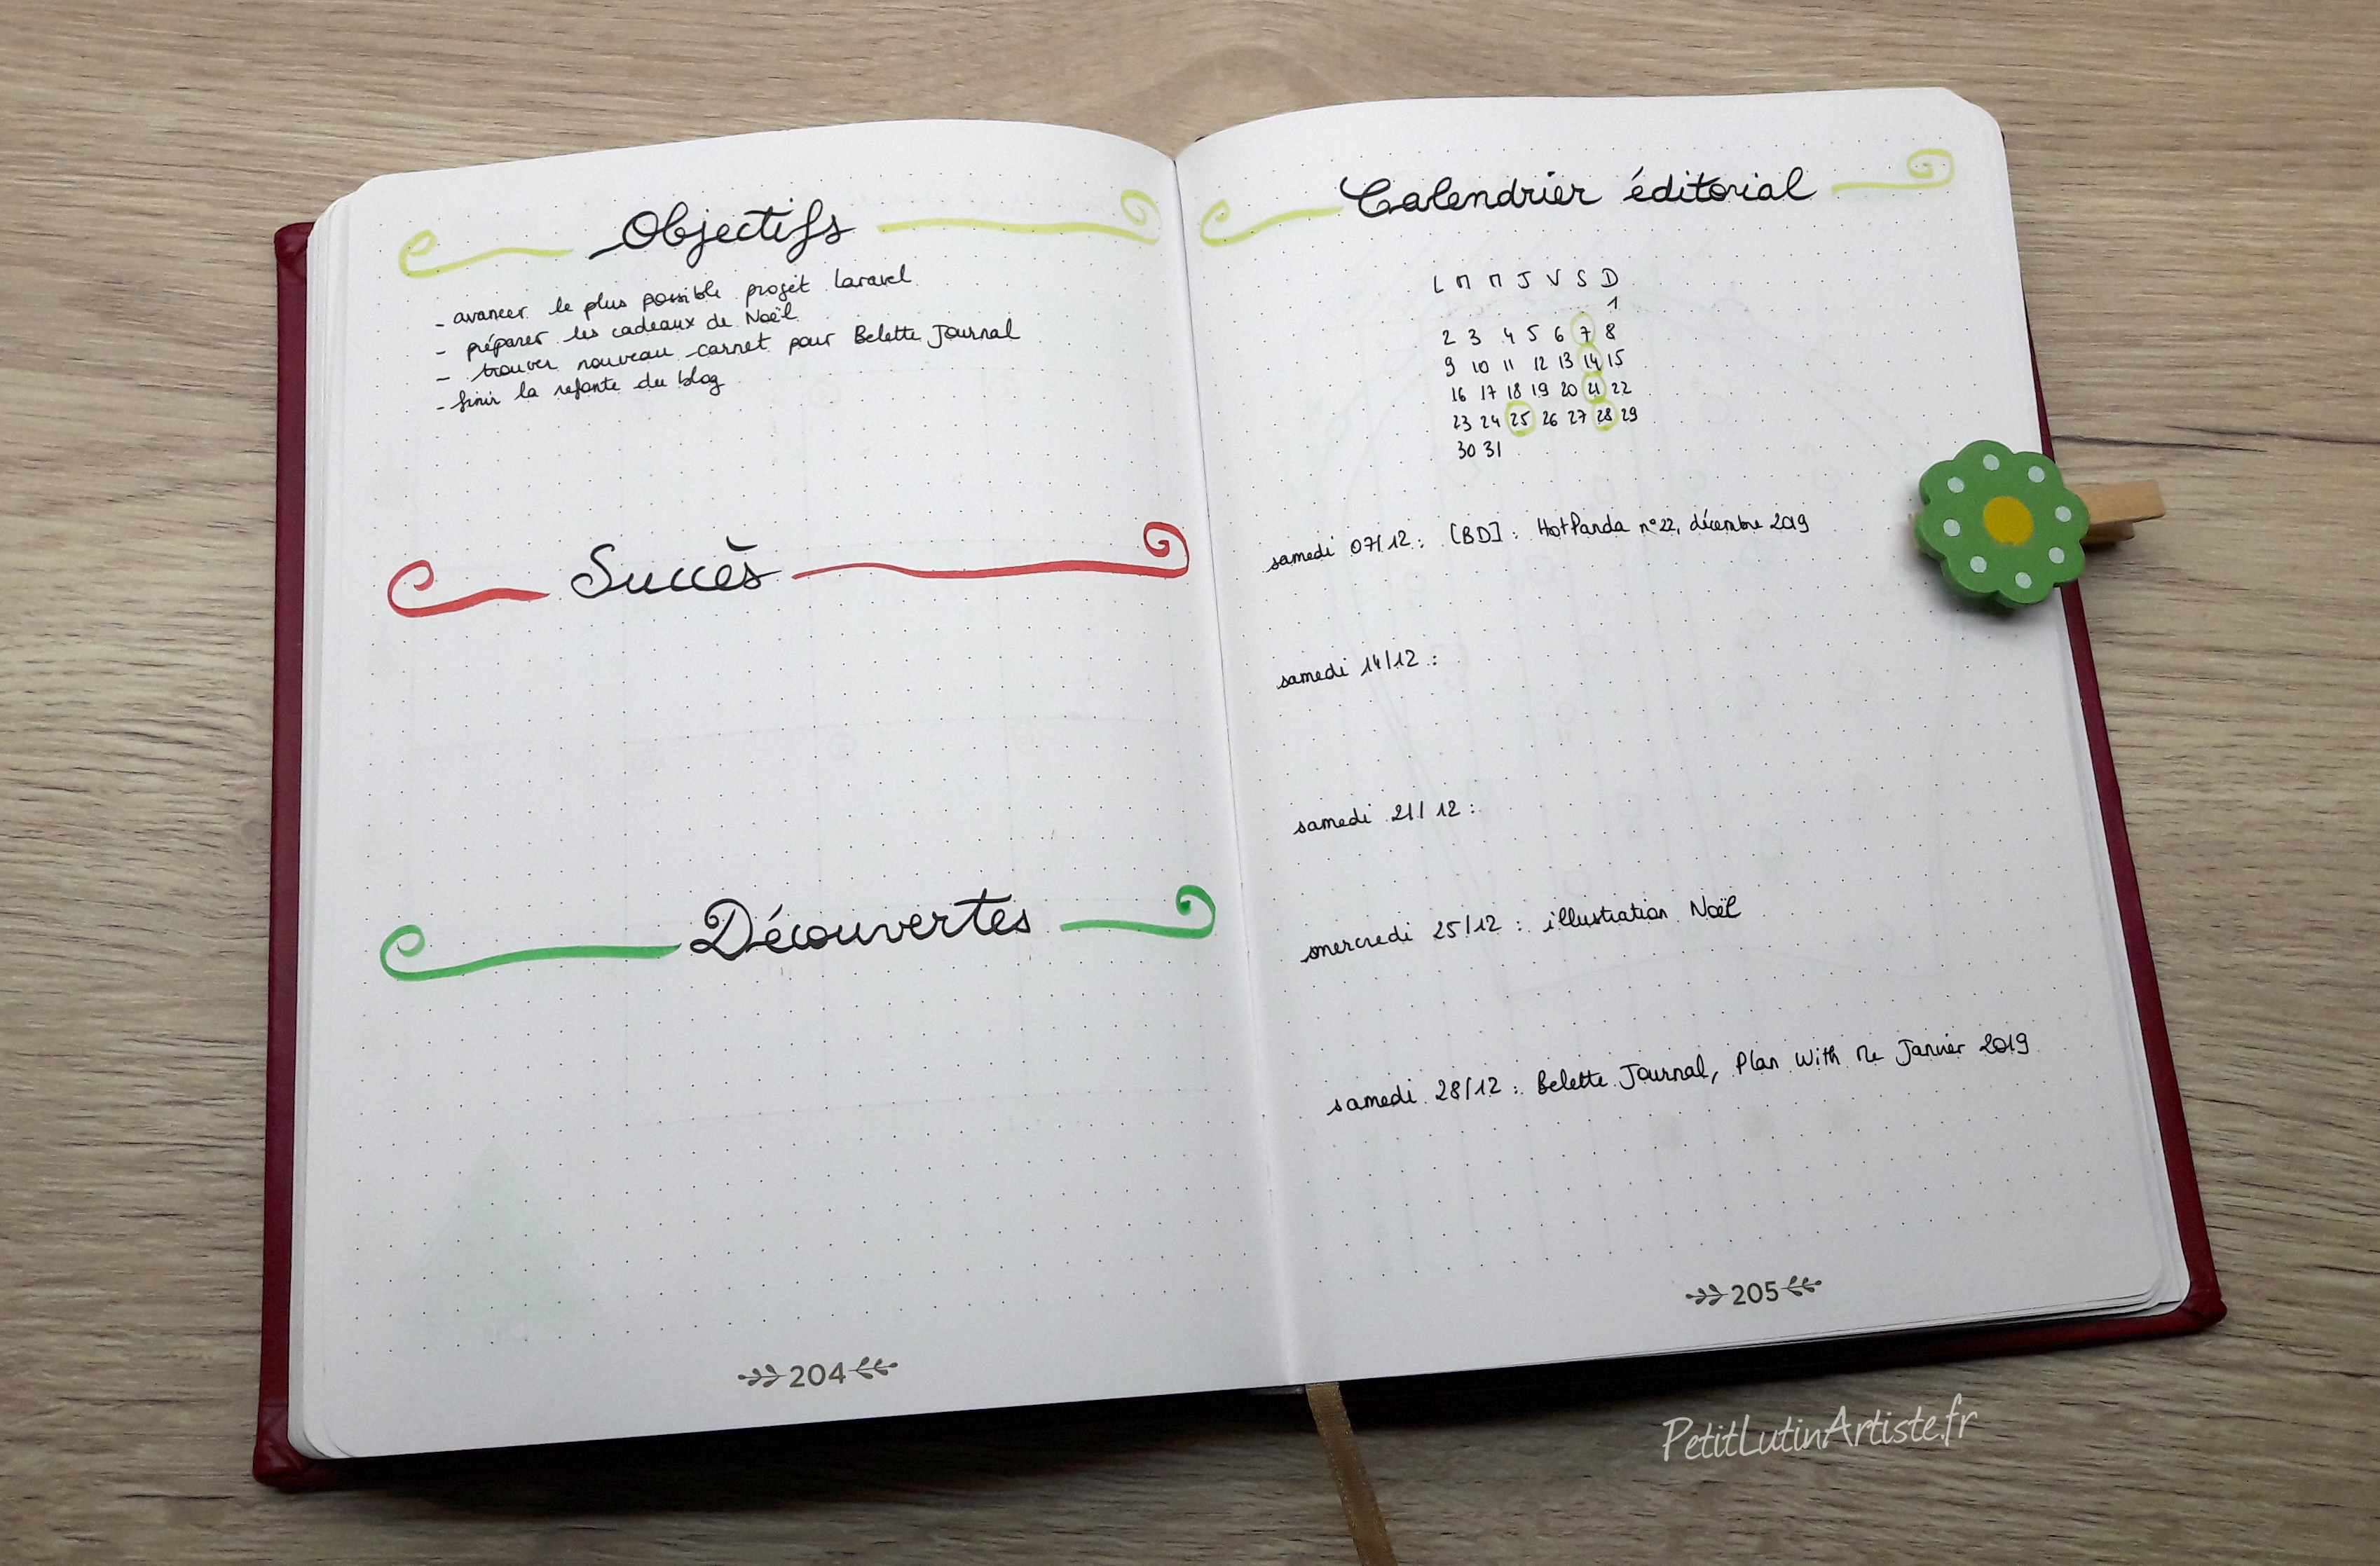 Objectifs
- avancer le plus possible projet Laravel
- préparer les cadeaux de Noël
- trouver nouveau carnet pour Belette Journal
- finir la refonte du blog
Succès
Découvertes
204
Calendrier éditorial
L M M J V S D
1
2 3 4 5 6 7 8
9 10 11 12 13 14 15
16 17 18 19 20 21 22
23 24 25 26 27 28 29
30 31
samedi 07/12 : [BD] : HotPanda n°22, décembre 2019
samedi 14/12 :
samedi 21/12 :
mercredi 25/12 : illustration Noël
samedi 28/12 : Belette Journal, Plan With Me Janvier 2019
205
PetitLutinArtiste.fr